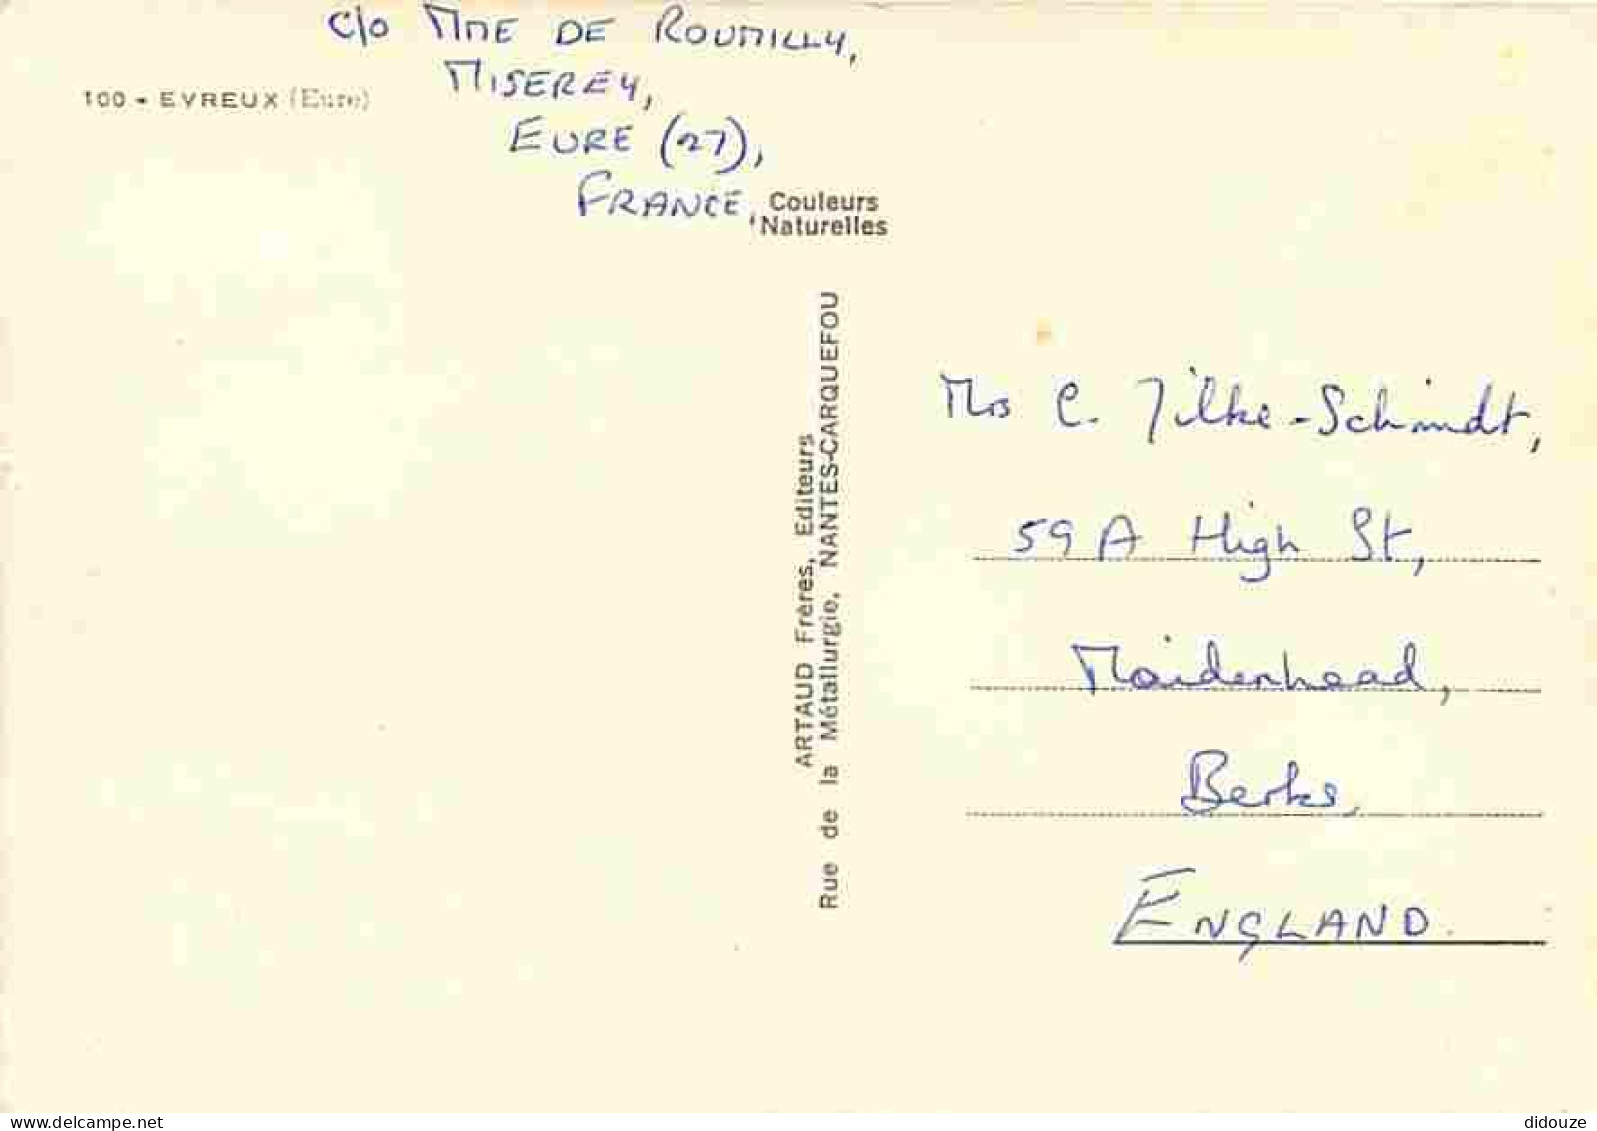 C/O MME DE ROUMILLY,
MISEREY,
EURE (27),
FRANCE,
100 - EVREUX (Eure)
Couleurs
Naturelles
ARTAUD Frères, Editeurs
Rue de la Métallurgie, NANTES-CARQUEFOU
Mrs C. Jilke-Schmidt,
59A High St,
Maidenhead,
Berks,
ENGLAND.
didouze